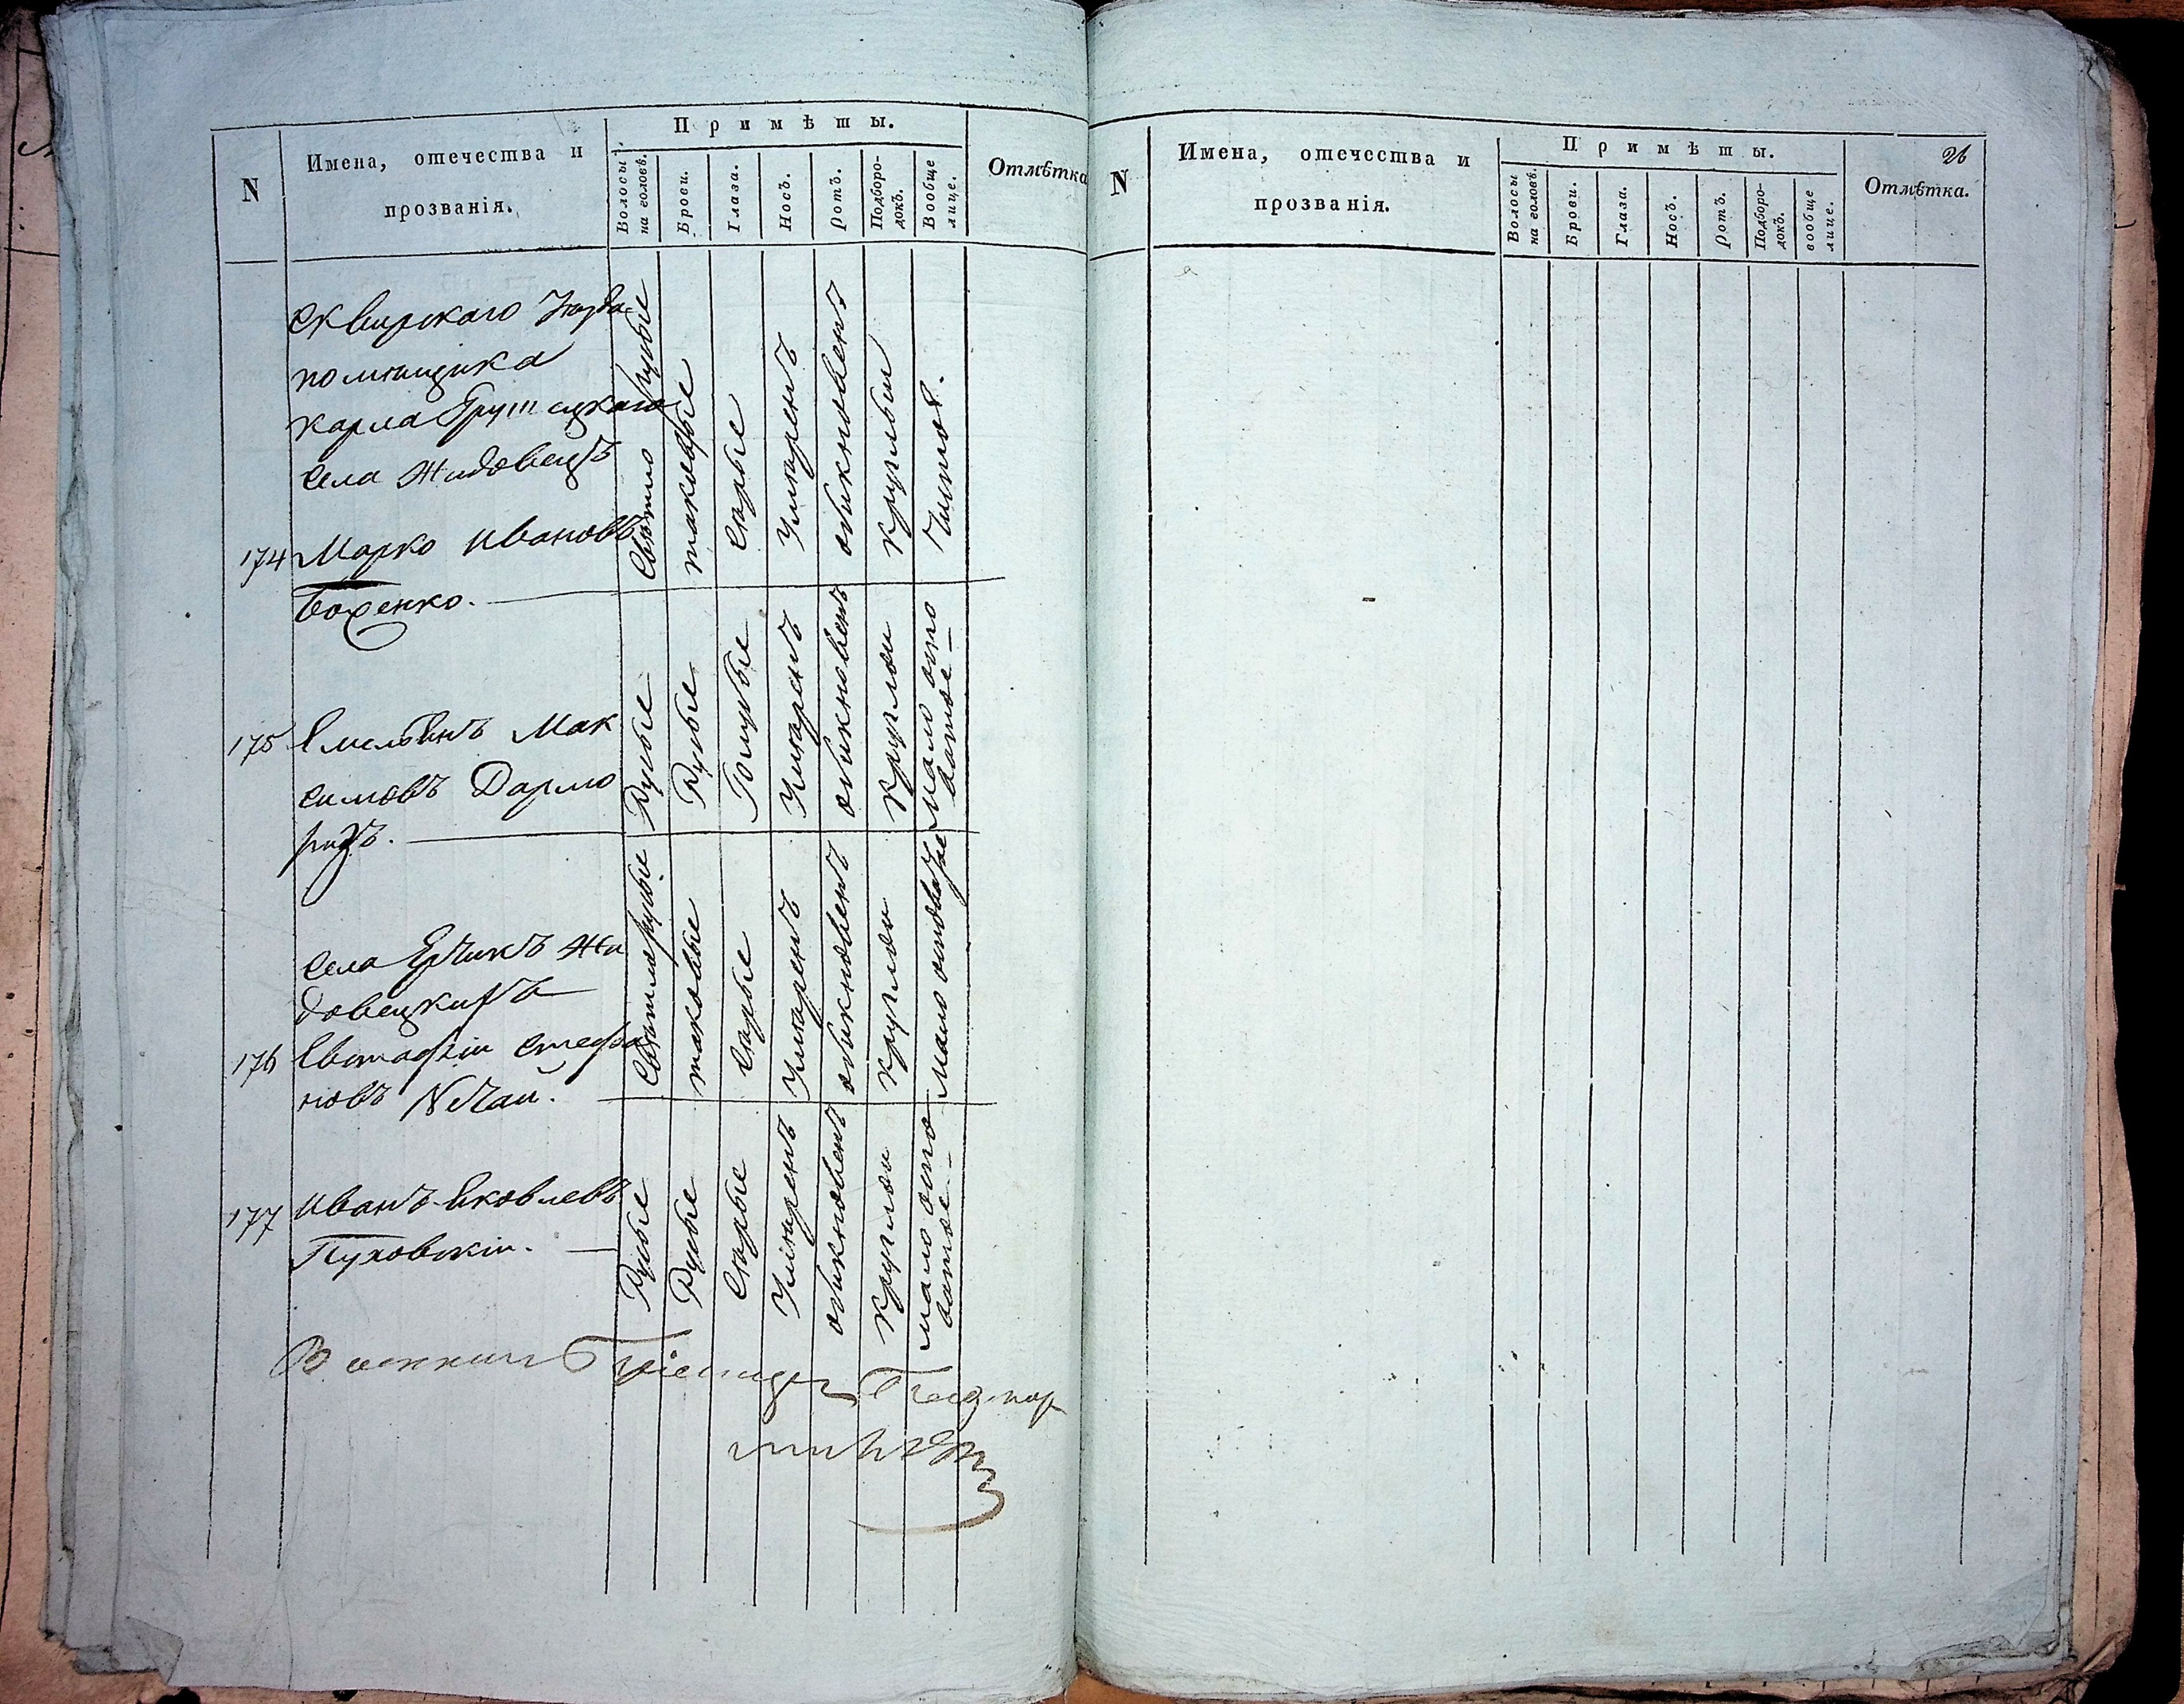 N
Имена, отечества и
прозванія.
Примѣты.
Волосы на головѣ.
Брови.
Глаза.
Носъ.
Ротъ.
Подборо-
докъ.
Вообще
лице.
Отмѣтка
Сквирского
помѣщика
карла
села Жидовецъ
174 Марко Ивановъ
Бохенко.
Свѣтло русые
таковые
Сѣрые
Умѣренъ
обикновенъ
круглый
Чистое.
175 Емельянъ Мак
симовъ Дармо
ридъ.
Русые
Русые
Голубые
Умѣренъ
обикновенъ
круглои
Мало оспо
ватое
Села Ерчикъ Жи
довецкихъ
176 Евстафіи Стефа
новъ Nечаи.
Свѣтлорусые
таковые
Сѣрые
Умѣренъ
обикновенъ
круглои
Мало осповатое
177 Иванъ Яковлевъ
Пуховскіи.
Русые
Русые
Сѣрые
Умѣренъ
обикновенъ
круглои
мало оспо
ватое
N
Имена, отечества и
прозванія.
Примѣты.
Волосы
на головѣ.
Брови.
Глаза.
Носъ.
Ротъ.
Подборо-
докъ.
вообще
лице.
26
Отмѣтка.